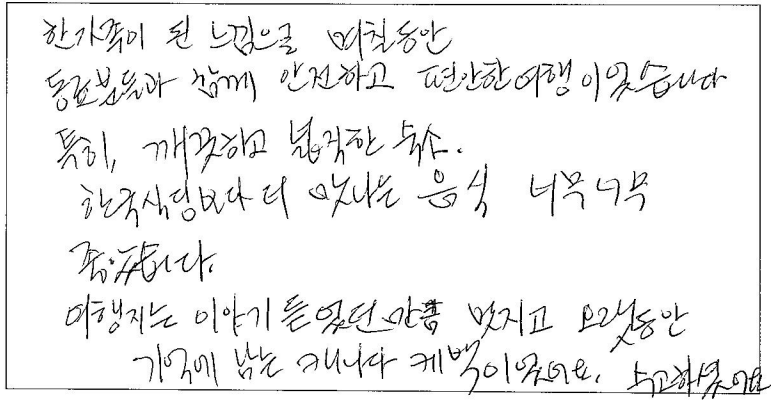 한가족이 된 느낌으로 며칠동안
동료분들과 함께 안전하고 편안한 여행이었습니다
특히, 깨끗하고 넓직한 숙소.
한국식당보다 더 맛나는 음식 너무너무
좋았습니다.
여행지는 이야기 들었던 만큼 멋지고 오랫동안
기억에 남는 캐나다 퀘백이었어요. 수고하셨어요